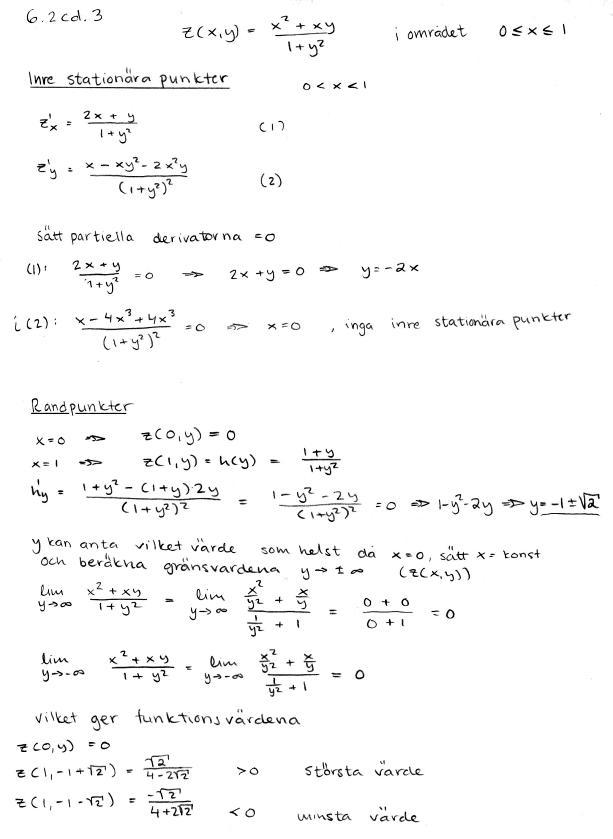 6.2cd.3
z(x,y) = \frac{x² + xy}{1+y²} i området 0 ≤ x ≤ 1
Inre stationära punkter 0 < x < 1
z'x = \frac{2x + y}{1+y²} (1)
z'y = \frac{x - xy² - 2x²y}{(1+y²)²} (2)
Sätt partiella derivatorna =0
(1): \frac{2x+y}{1+y²} = 0 ⇒ 2x+y=0 ⇒ y=-2x
i (2): \frac{x - 4x³ + 4x³}{(1+y²)²} = 0 ⇒ x=0 , inga inre stationära punkter
Randpunkter
x=0 ⇒ z(0,y) = 0
x=1 ⇒ z(1,y) = h(y) = \frac{1+y}{1+y²}
h'y = \frac{1+y² - (1+y)·2y}{(1+y²)²} = \frac{1-y²-2y}{(1+y²)²} = 0 ⇒ 1-y²-2y ⇒ y=-1±√2
y kan anta vilket värde som helst då x=0, sätt x= konst
och beräkna gränsvärdena y→ ± ∞ (z(x,y))
lim y→∞ \frac{x²+xy}{1+y²} = lim y→∞ \frac{\frac{x²}{y²} + \frac{x}{y}}{\frac{1}{y²} + 1} = \frac{0 + 0}{0 + 1} = 0
lim y→-∞ \frac{x²+xy}{1+y²} = lim y→-∞ \frac{\frac{x²}{y²} + \frac{x}{y}}{\frac{1}{y²} + 1} = 0
vilket ger funktionsvärdena
z(0,y) = 0
z(1,-1+√2) = \frac{√2}{4-2√2} >0 största värde
z(1,-1-√2) = \frac{-√2}{4+2√2} <0 minsta värde